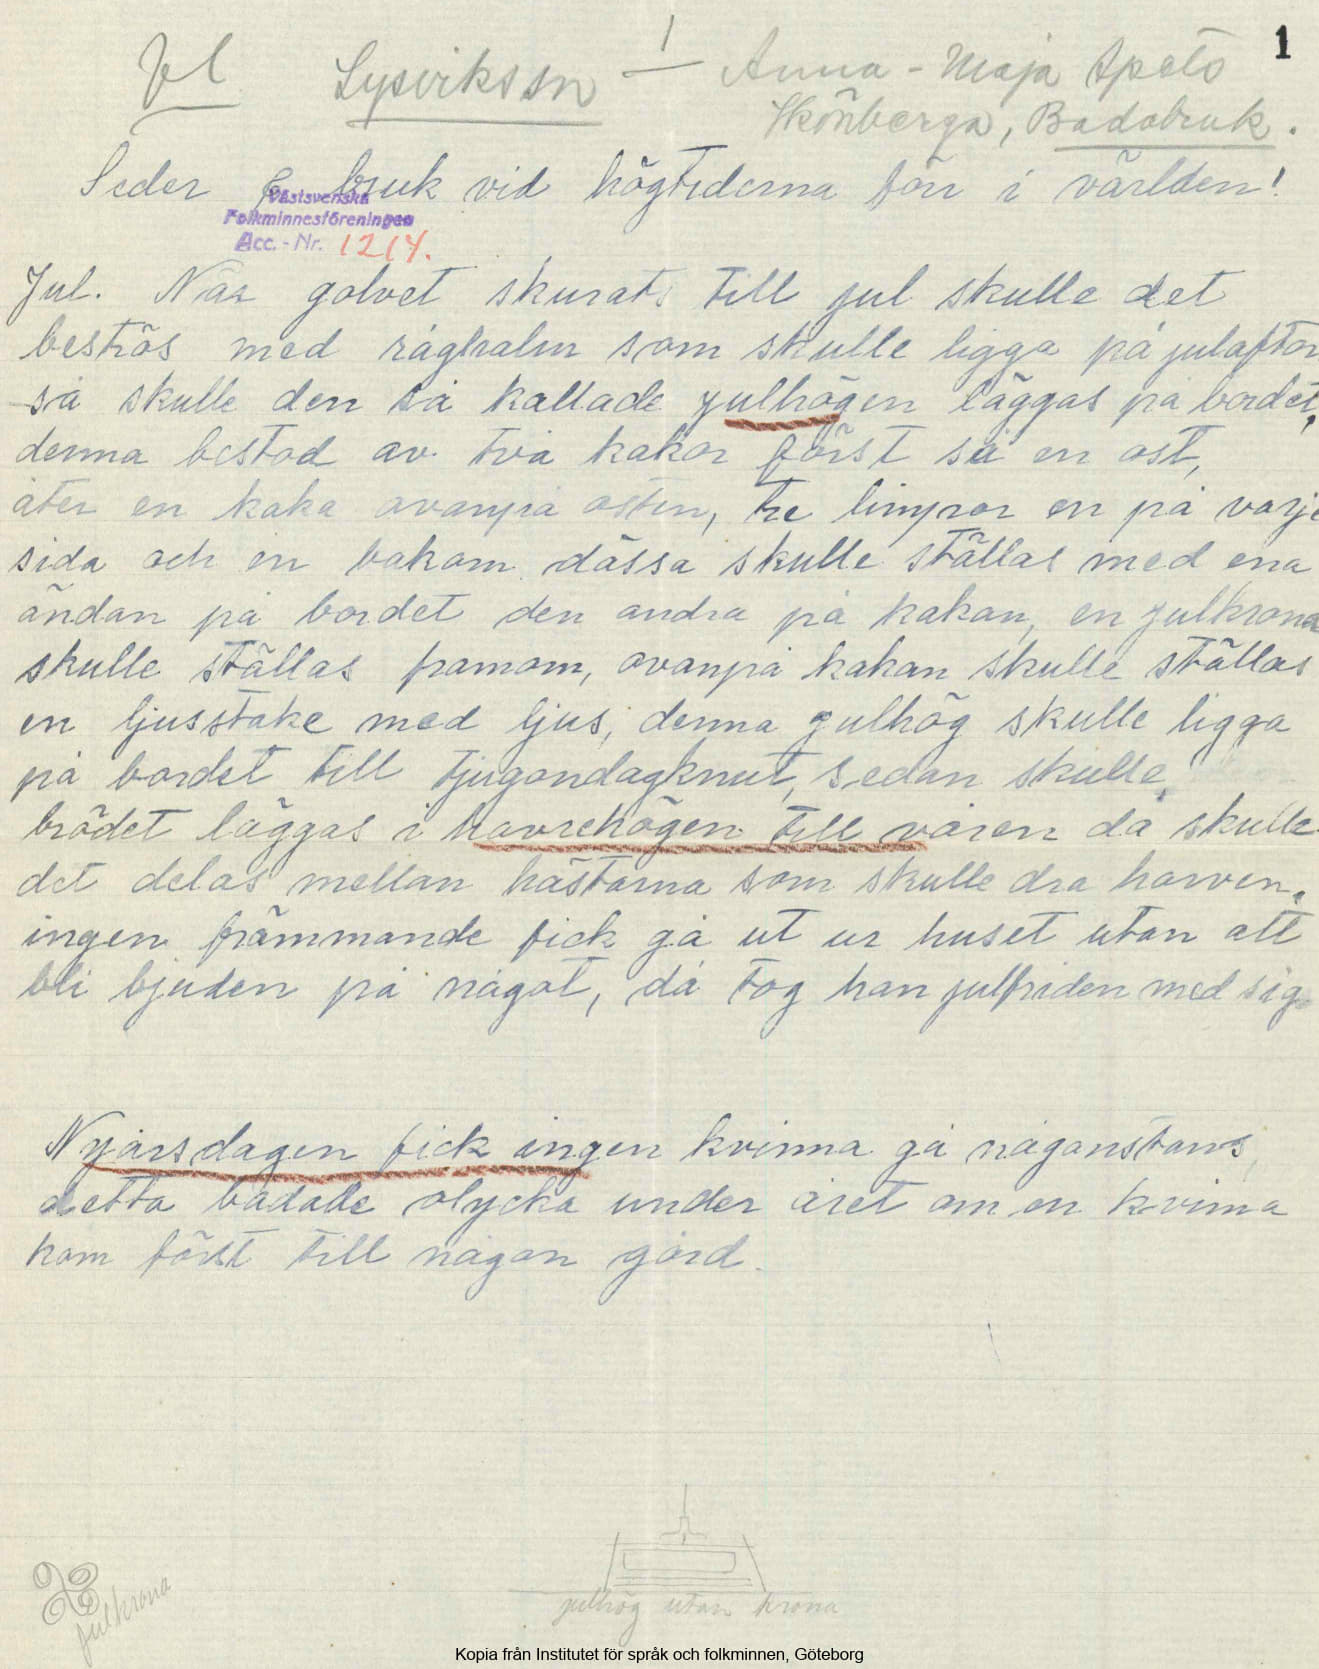 1
1
Vl Lysvikssn — Anna-Maja Spets
Skönberga, Badabruk.
Seder & bruk vid högtiderna förr i världen!
Västsvenska
Folkminnesföreningen
Acc.-Nr. 1214.
Jul. När golvet skurats till jul skulle det
beströs med råghalm som skulle ligga på julafton
så skulle den så kallade julhögen läggas på bordet,
denna bestod av två kakor först så en ost,
åter en kaka ovanpå osten, tre limpor en på varje
sida och en bakom dässa skulle ställas med ena
ändan på bordet den andra på kakan, en julkrona
skulle ställas framom, ovanpå kakan skulle ställas
en ljusstake med ljus, denna julhög skulle ligga
på bordet till tjugondagknut, sedan skulle
brödet läggas i havrehögen till våren då skulle
det delas mellan hästarna som skulle dra harven.
ingen främmande fick gå ut ur huset utan att
bli bjuden på något, då tog han julfriden med sig.
Nyårsdagen fick ingen kvinna gå någonstans,
detta bådade olycka under året om en kvinna
kom först till någon gård.
julkrona
julhög utan krona
Kopia från Institutet för språk och folkminnen, Göteborg